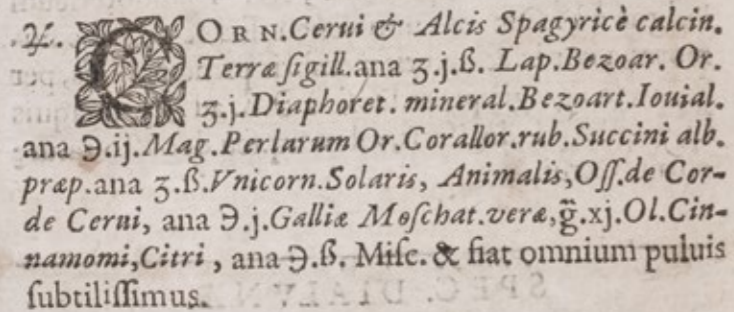 ℞. CORN. Cerui & Alcis Spagyricè calcin.
Terræ ſigill. ana ʒ.j.ß. Lap. Bezoar. Or.
ʒ.j. Diaphoret. mineral. Bezoart. Iouial.
ana ℈.ij. Mag. Perlarum Or. Corallor. rub. Succini alb.
præp. ana ʒ.ß. Vnicorn. Solaris, Animalis, Oſſ. de Cor-
de Cerui, ana ℈.j. Galliæ Moſchat. veræ, g̃. xj. Ol. Cin-
namomi, Citri, ana ℈.ß. Miſc. & fiat omnium puluis
ſubtiliſſimus.